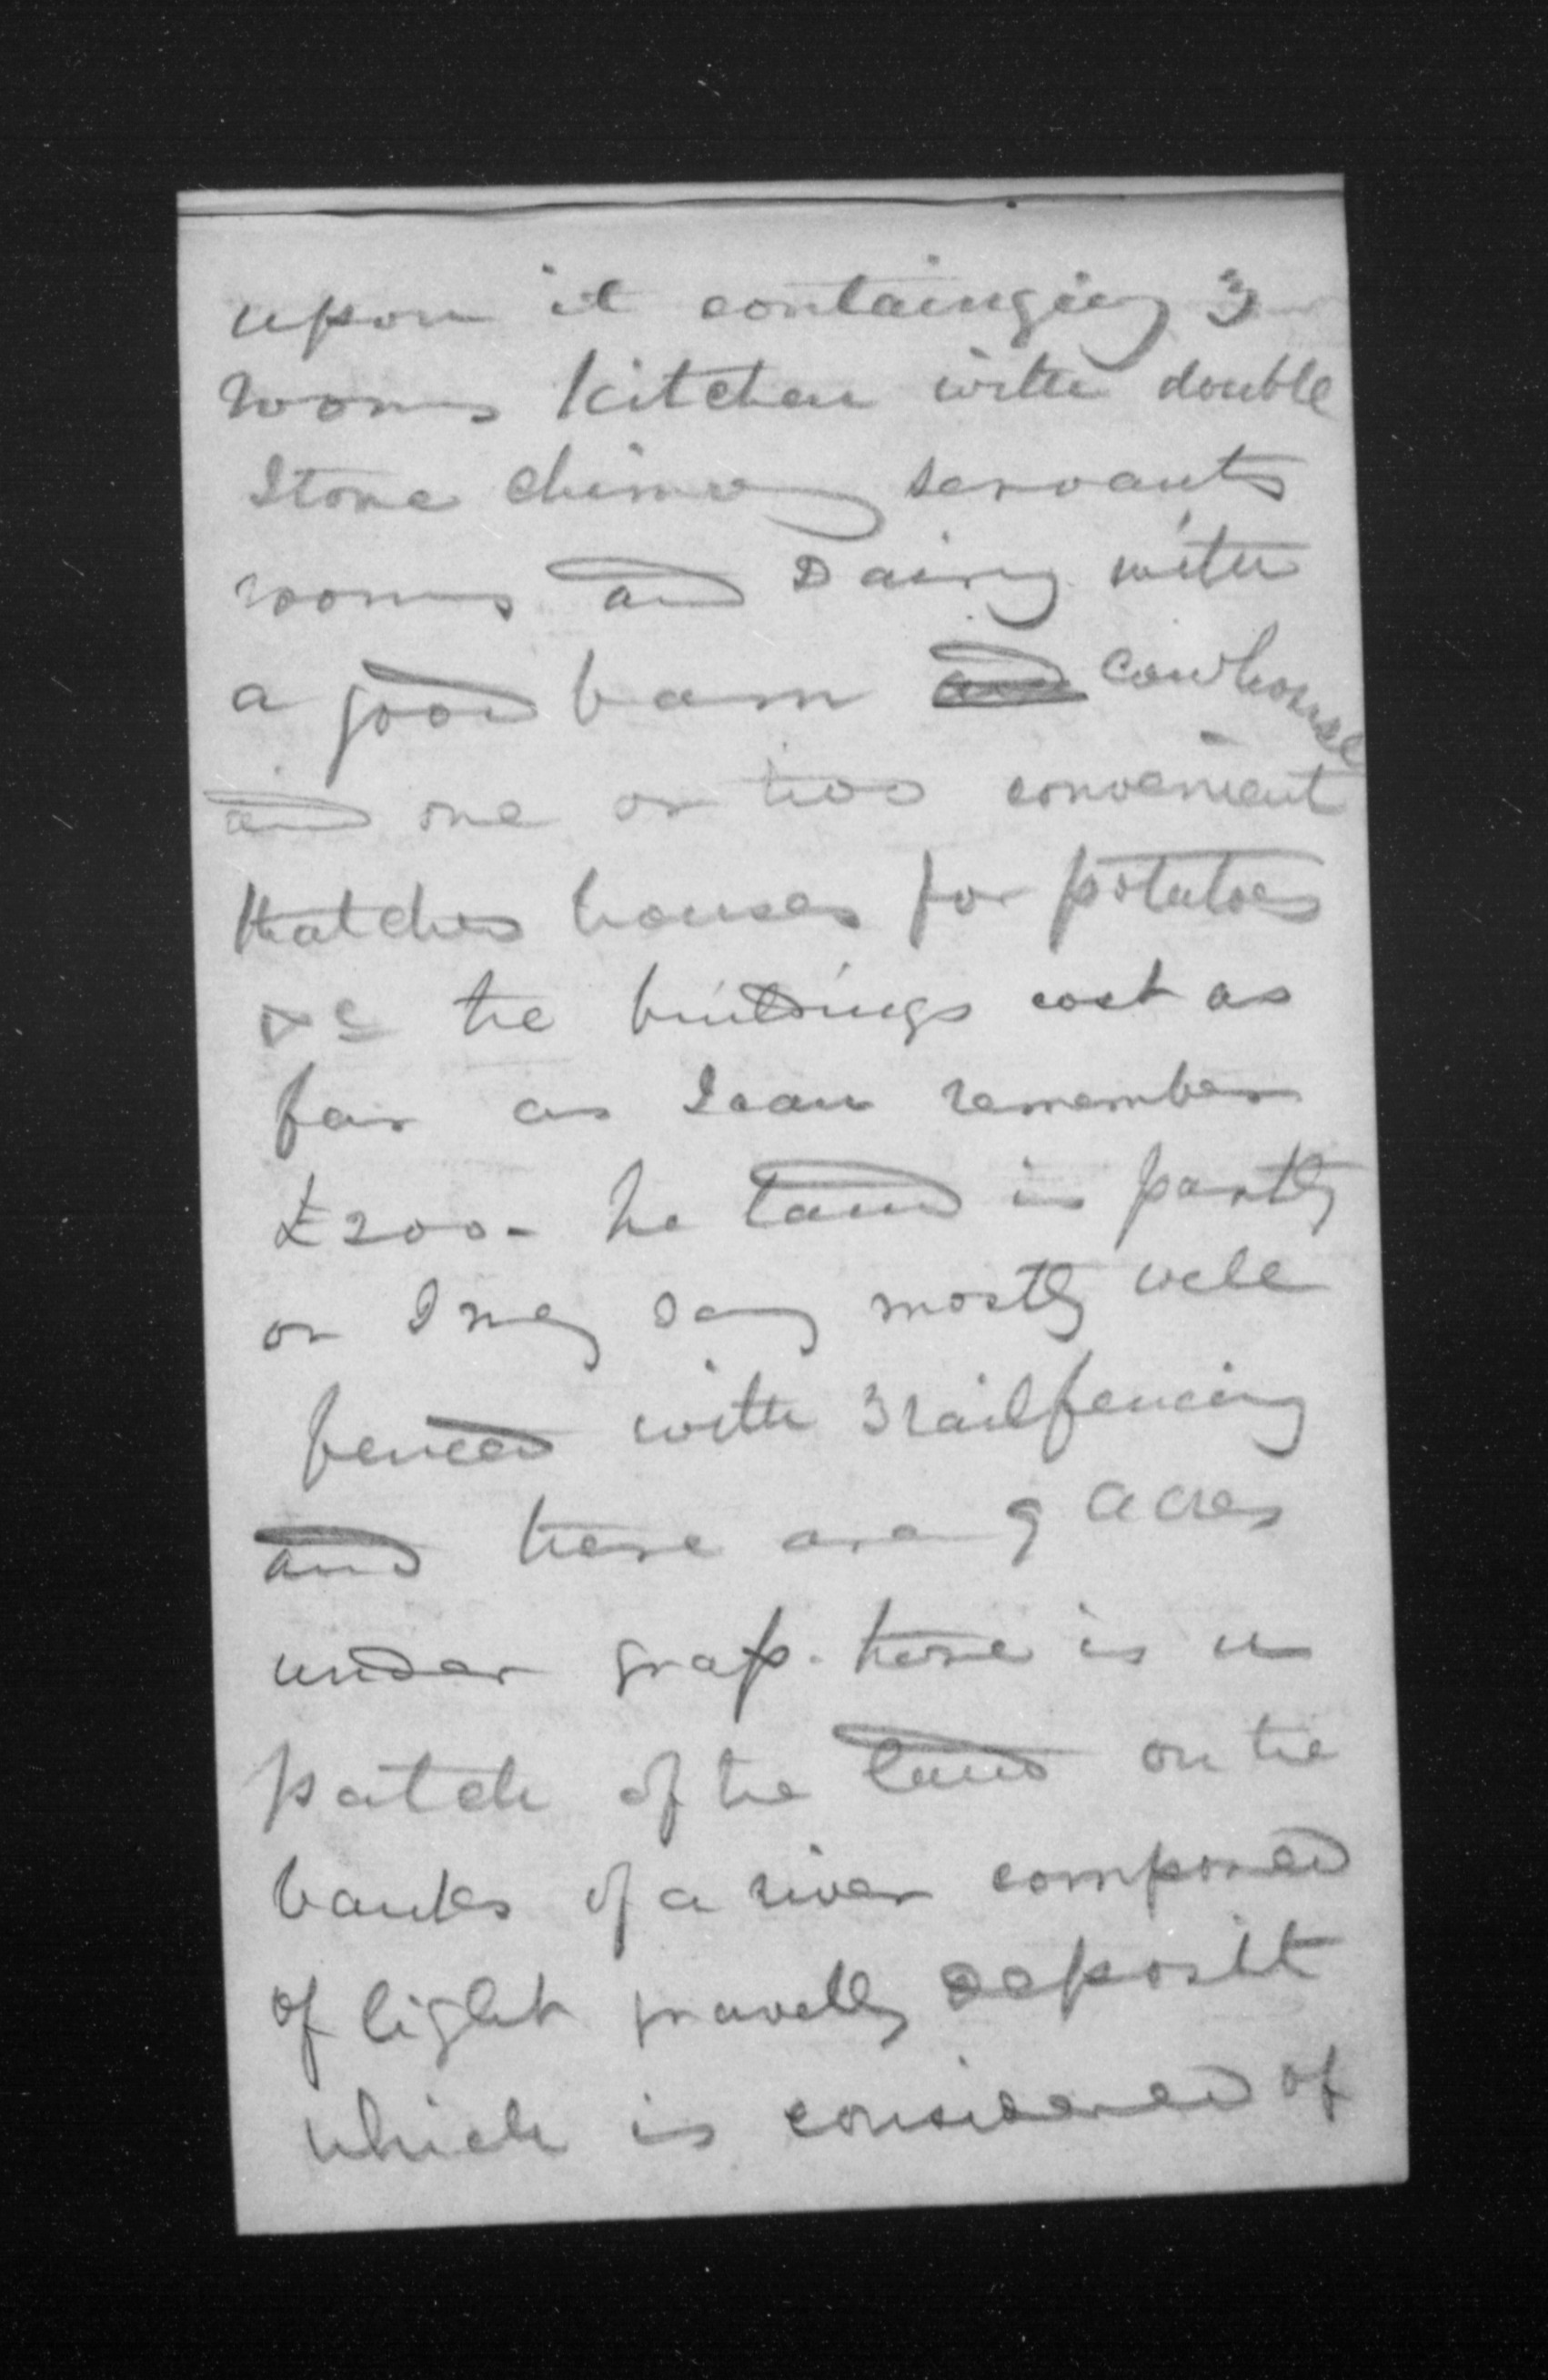 upon it containging 3
rooms kitchen with double
Stone chimney servants
rooms and Dairy with
a good barn and cowhouse
and one or two convenient
thatched houses for potatoes
&c the buildings cost as
far as I can remember
£200- the land is partly
or I may say mostly well
fenced with 3 rail fencing
and there are 9 acres
under grass. there is a
patch of the land on the
banks of a river composed
of light gravelly deposit
which is considered of